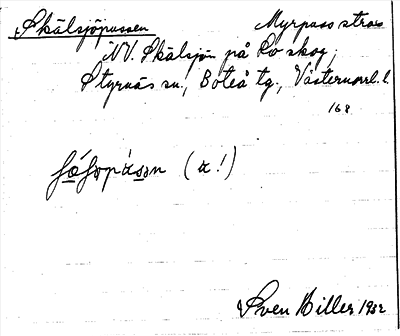 Skälsjöpussen Myrpussström
NV. Skälsjön på Lo skog,
Styrnäs sn., Boteå tg., Västernorrl. l.
168
(ɑ!)
Sven Hiller 1932